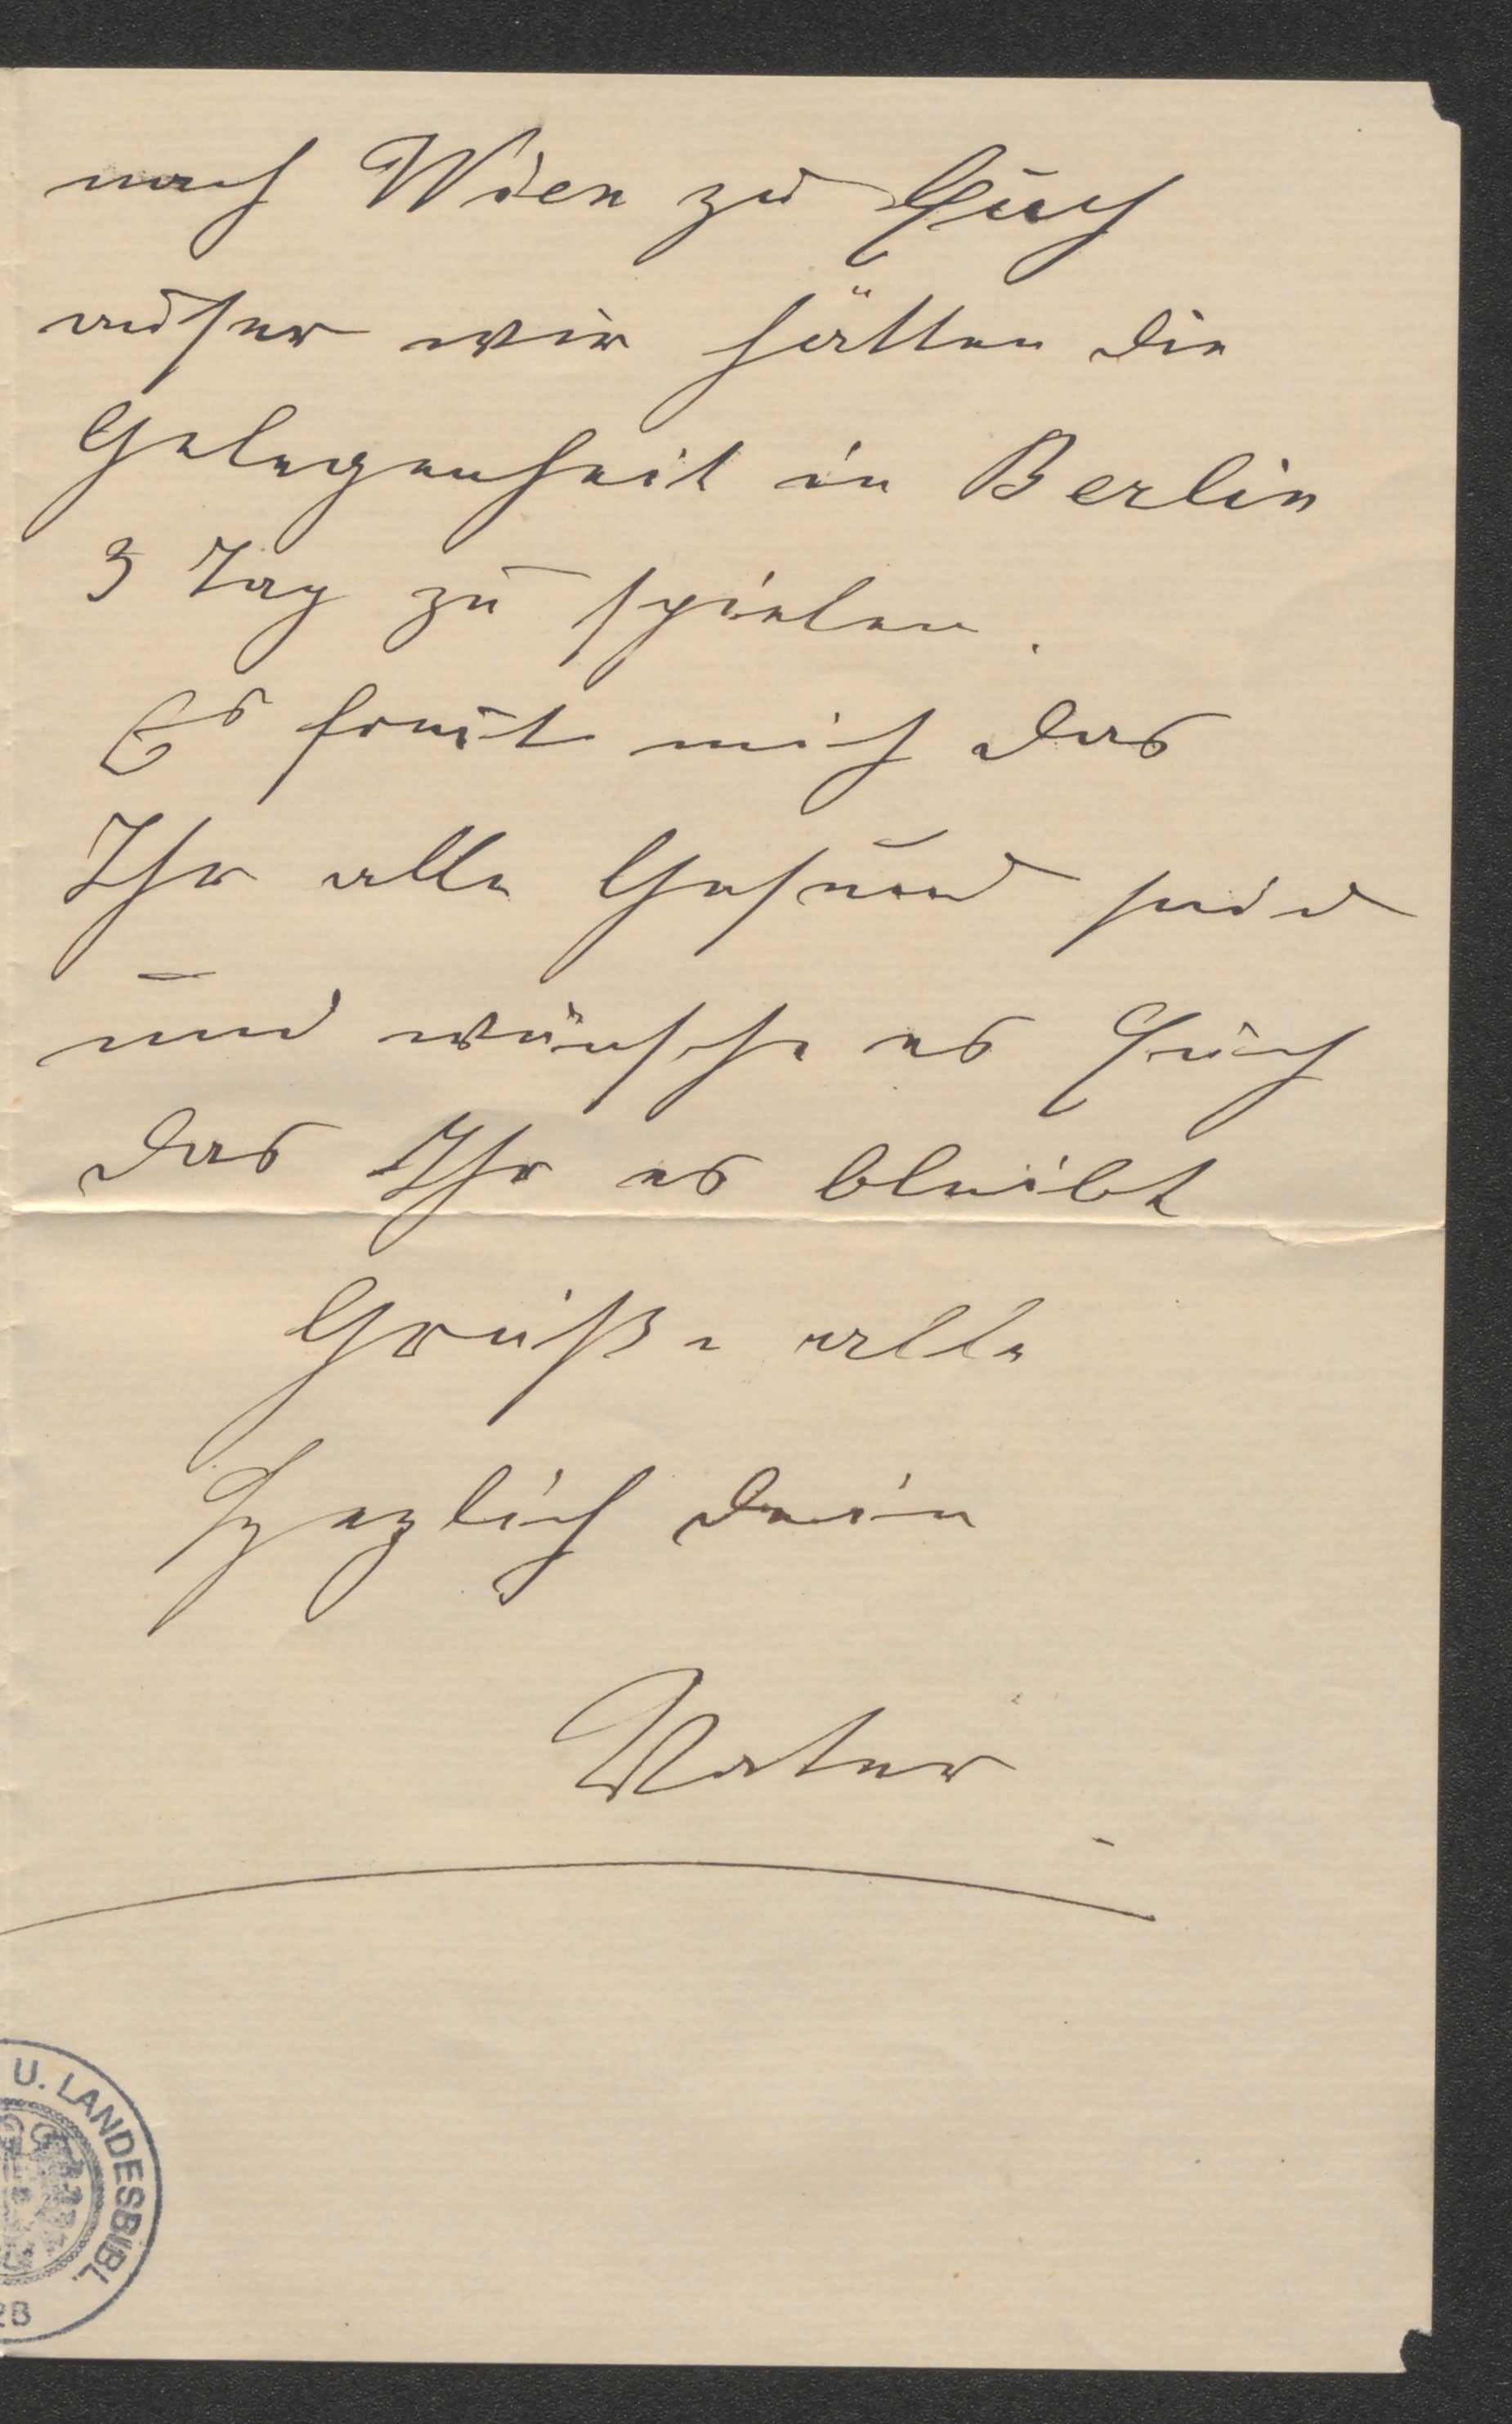 nach Wien zu Euch
auser wir hätten die
Gelegenheit in Berlin
3 Tag zu spielen.
Es freut mich das
Ihr alle Gesund seid
und wünsche es Euch
das Ihr es bleibt
Grüße alle
Herzlich dein
Vater
U. LANDESBIBL.